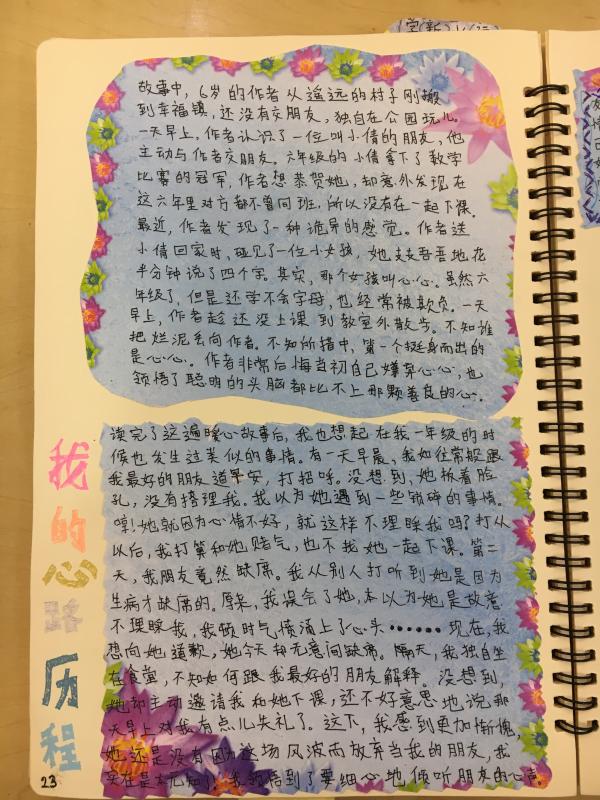 故事中，6岁的作者从遥远的村子刚搬
到幸福镇，还没有交朋友，独自在公园玩儿。
一天早上，作者认识了一位叫小倩的朋友，他
主动与作者交朋友。六年级的小倩拿下了数学
比赛的冠军，作者想恭贺她，却意外发现在
这六年里对方都不曾同班，所以没有在一起下课。
最近，作者发现了一种诡异的感觉。作者送
小倩回家时，碰见了一位小女孩，她支支吾吾地花
半分钟说了四个字。其实，那个女孩叫心心。虽然六
年级了，但是还学不会字母，也经常被欺负。一天
早上，作者趁还没上课到教室外散步。不知谁
把烂泥丢向作者。不知所措中，第一个挺身而出的
是心心。作者非常后悔当初自己嫌弃心心，也
领悟了聪明的头脑都比不上那颗善良的心。
读完了这遍暖心故事后，我也想起在我一年级的时
候也发生过类似的事情。有一天早晨，我如往常般跟
我最好的朋友道早安，打招呼。没想到，她板着脸
孔，没有搭理我。我以为她遇到一些琐碎的事情。
哼！她就因为心情不好，就这样不理睬我吗？打从
以后，我打算和她赌气，也不找她一起下课。第二
天，我朋友竟然缺席。我从别人打听到她是因为
生病才缺席的。原来，我误会了她，本以为她是故意
不理睬我，我顿时气愤涌上了心头……现在，我
想向她道歉，她今天却无意间缺席。隔天，我独自坐
在食堂，不知如何跟我最好的朋友解释。没想到，
她却主动邀请我和她下课，还不好意思地说那
天早上对我有点儿失礼了。这下，我感到更加惭愧，
她还是没有因为这场风波而放弃当我的朋友，我
实在是太无知了！我领悟到了要细心地倾听朋友的心声。
我的心路历程
23